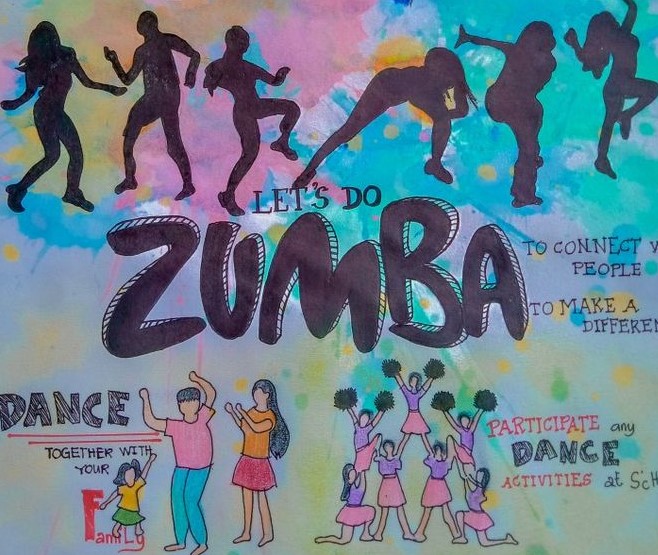 LET'S DO
ZUMBA
TO CONNECT
PEOPLE
TO MAKE A
DANCE
TOGETHER WITH
YOUR
Family
PARTICIPATE any
DANCE
ACTIVITIES at